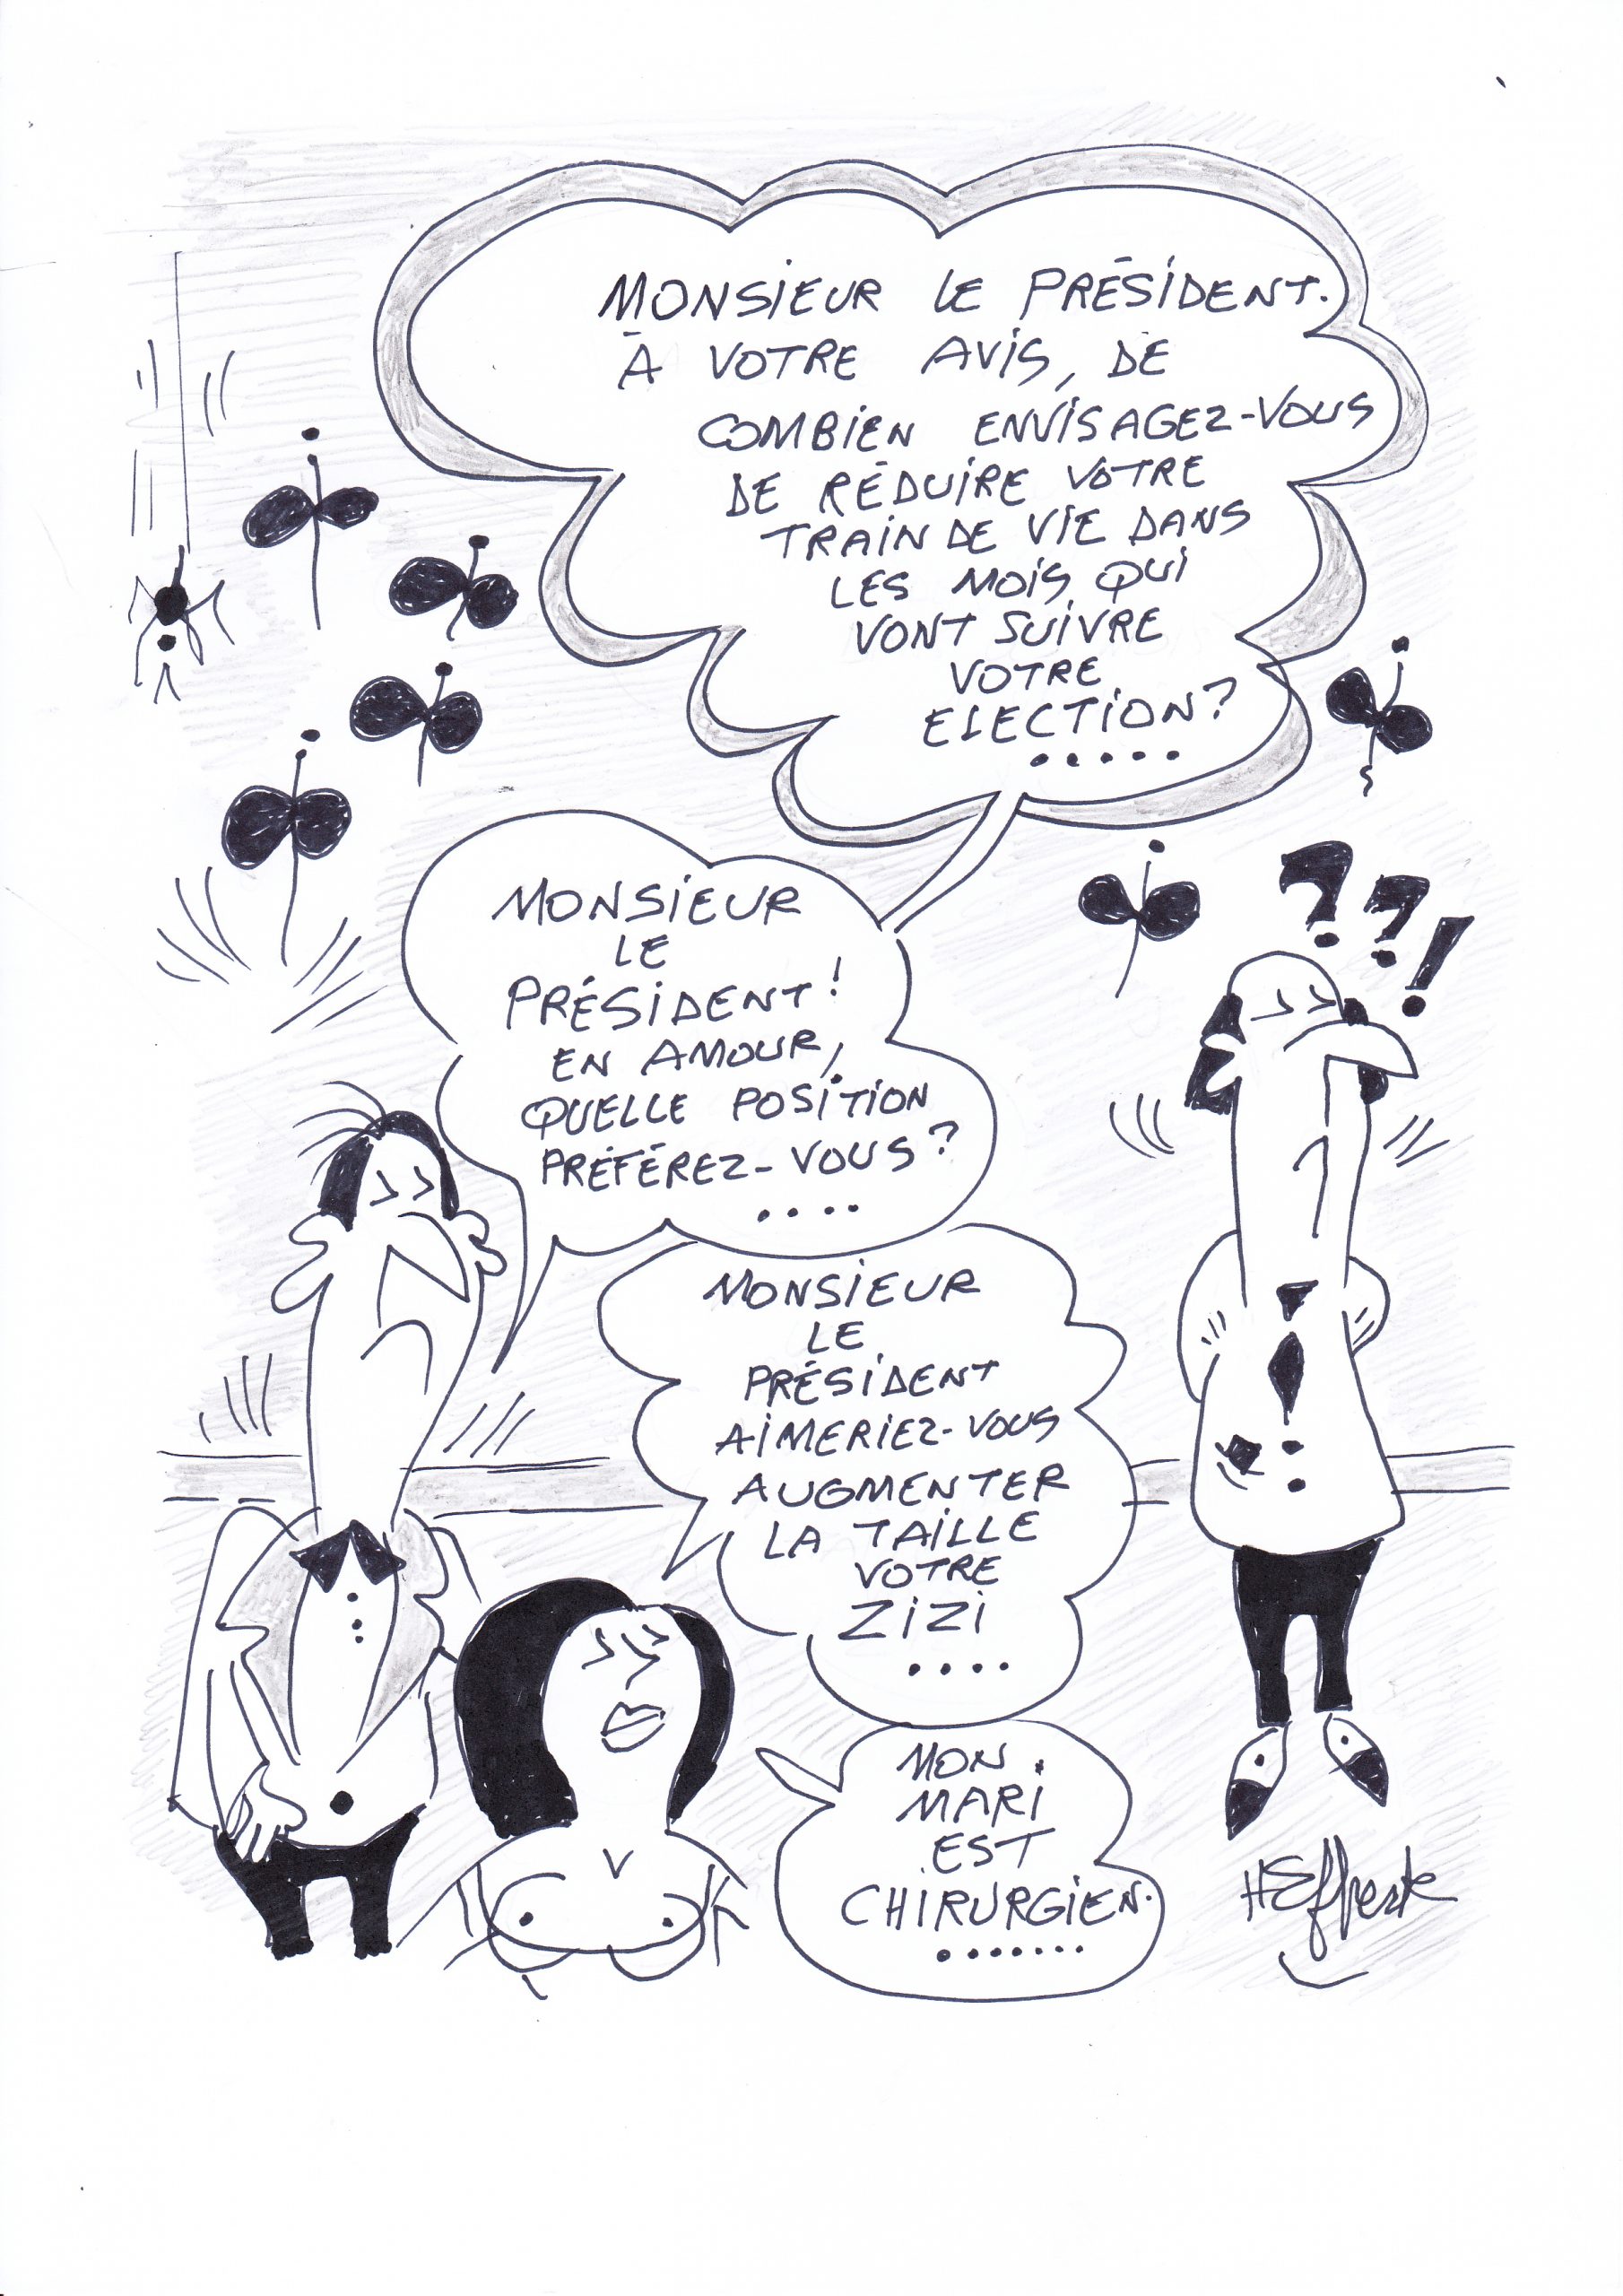 MONSIEUR LE PRÉSIDENT.
À VOTRE AVIS, DE
COMBIEN ENVISAGEZ-VOUS
DE RÉDUIRE VOTRE
TRAIN DE VIE DANS
LES MOIS QUI
VONT SUIVRE
VOTRE
ELECTION?
.....
MONSIEUR
LE
PRÉSIDENT!
EN AMOUR,
QUELLE POSITION
PRÉFÉREZ-VOUS?
....
? ? !
MONSIEUR
LE
PRÉSIDENT
AIMERIEZ-VOUS
AUGMENTER
LA TAILLE
VOTRE
ZIZI
....
MON
MARI
EST
CHIRURGIEN.
.......